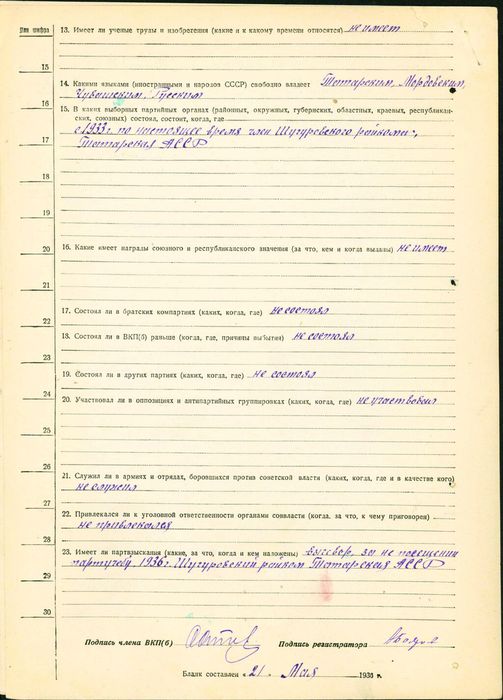 Для шифра
13. Имеет ли ученые труды и изобретения (какие и к какому времени относятся) не имеет
15
14. Какими языками (иностранными и народов СССР) свободно владеет Татарским, Мордовским,
16
Чувашским, Русским
15. В каких выборных партийных органах (районных, окружных, губернских, областных, краевых, республикан-
ских, союзных) состоял, состоит, когда, где
с 1933 г. по настоящее время член Шугуровского райкома
17
Татарская АССР
18
19
20
16. Какие имеет награды союзного и республиканского значения (за что, кем и когда выданы) не имеет
21
17. Состоял ли в братских компартиях (каких, когда, где) не состоял
22
18. Состоял ли в ВКП(б) раньше (когда, где, причины выбытия) не состоял
23
19. Состоял ли в других партиях (каких, когда, где) не состоял
24
20. Участвовал ли в оппозициях и антипартийных группировках (каких, когда, где) не участвовал
25
26
21. Служил ли в армиях и отрядах, боровшихся против советской власти (каких, когда, где и в качестве кого)
27
не служил
22. Привлекался ли к уголовной ответственности органами соввласти (когда, за что, к чему приговорен)
не привлекался
28
23. Имеет ли партвзыскания (какие, за что, когда и кем наложены) выговор, за не посещении
партучебу 1936 г. Шугуровский райком Татарская АССР
29
30
Подпись члена ВКП(б)
Подпись регистратора
Бланк составлен «21» Мая 1936 г.